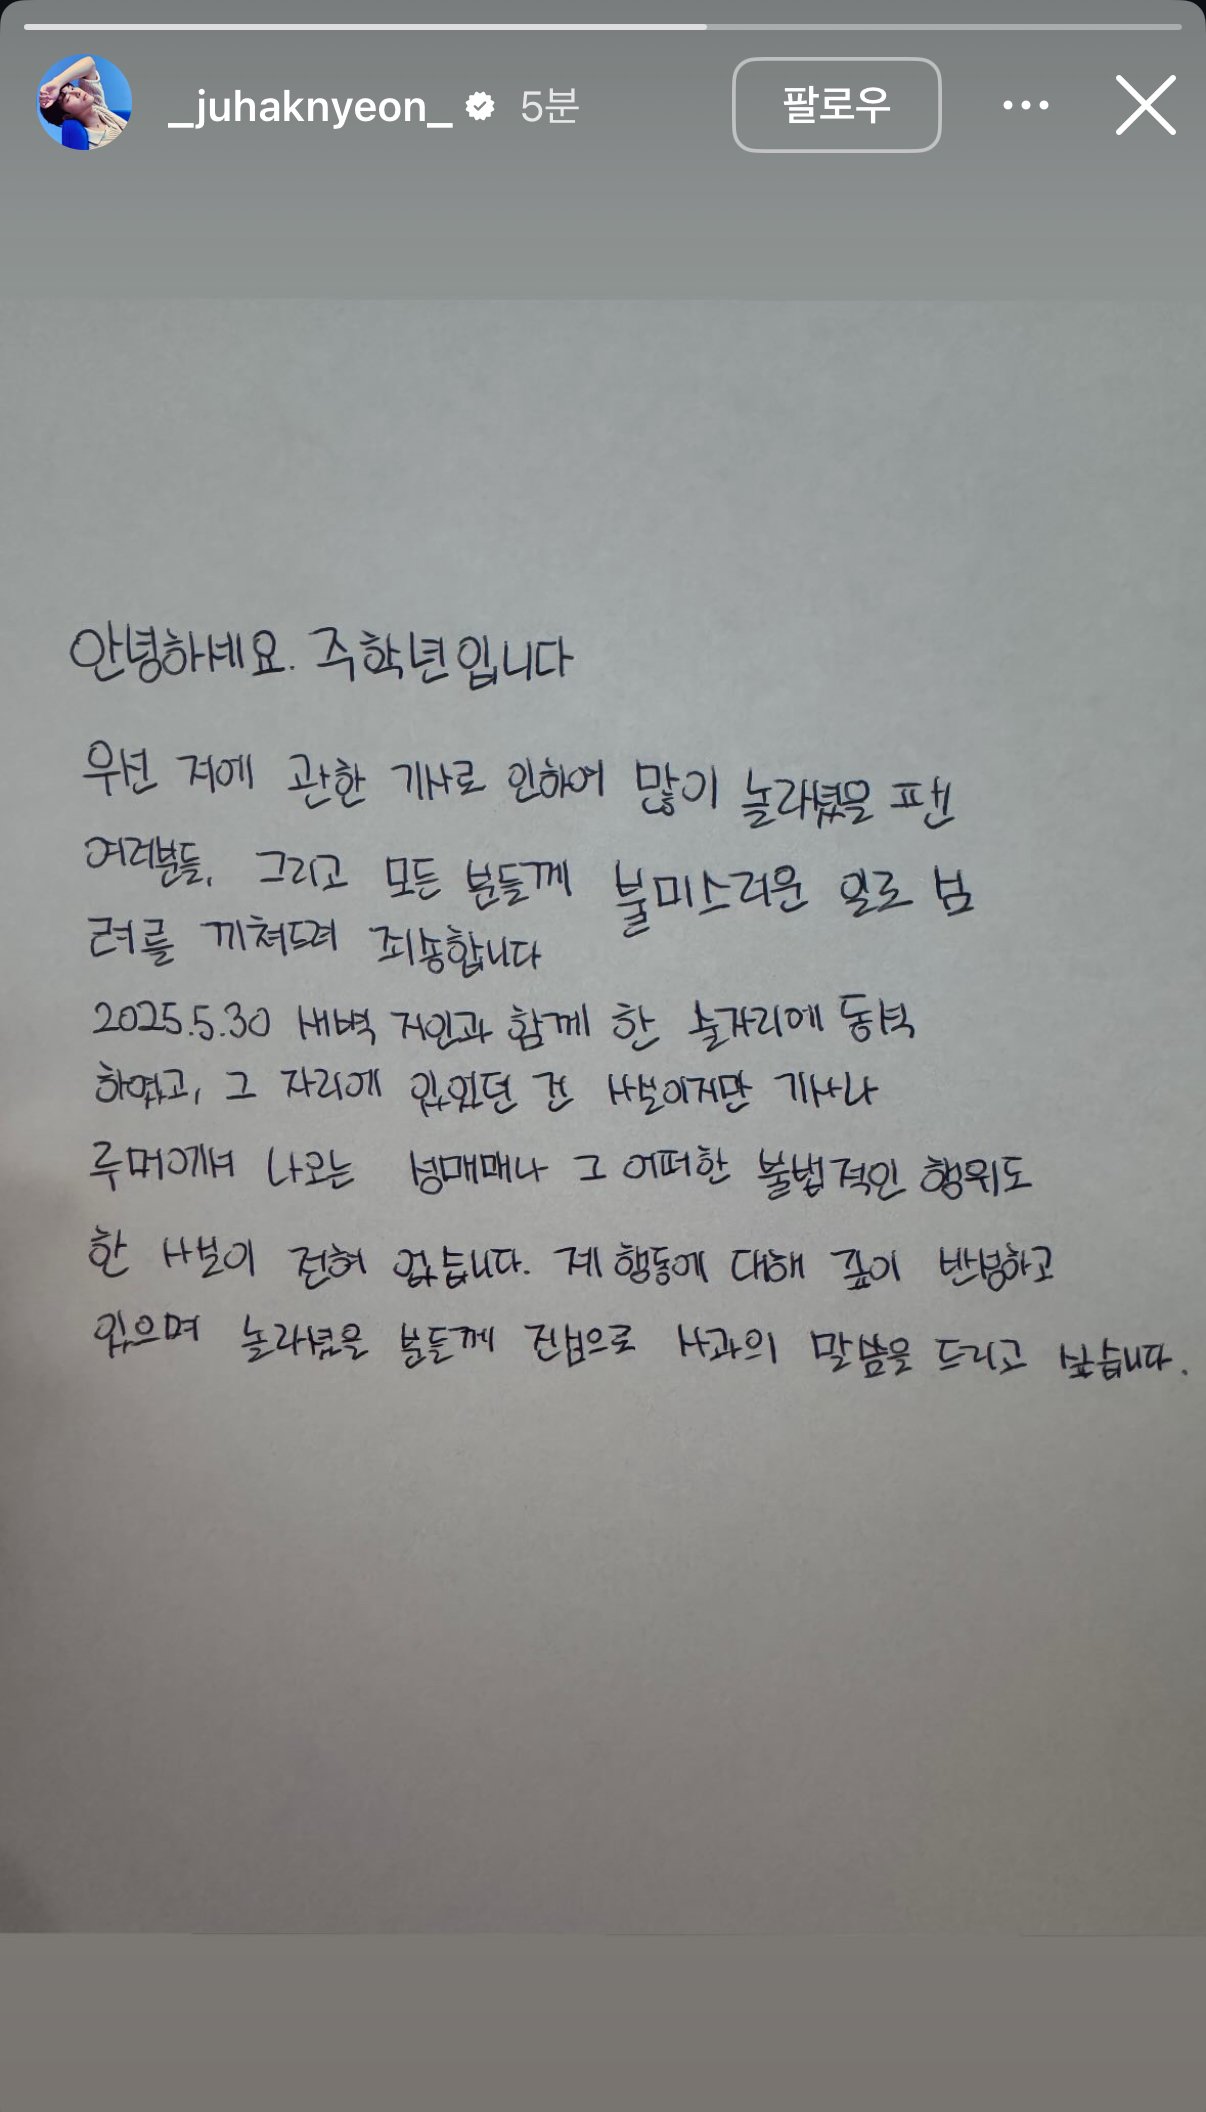 _juhaknyeon_ 5분 팔로우
안녕하세요. 주학년입니다
우선 저에 관한 기사로 인하여 많이 놀라셨을 팬
여러분들, 그리고 모든 분들께 불미스러운 일로 심
려를 끼쳐드려 죄송합니다
2025.5.30 새벽 지인과 함께 한 술자리에 동석
하였고, 그 자리에 있었던 건 사실이지만 기사나
루머에서 나오는 성매매나 그 어떠한 불법적인 행위도
한 사실이 전혀 없습니다. 제 행동에 대해 깊이 반성하고
있으며 놀라셨을 분들께 진심으로 사과의 말씀을 드리고 싶습니다.